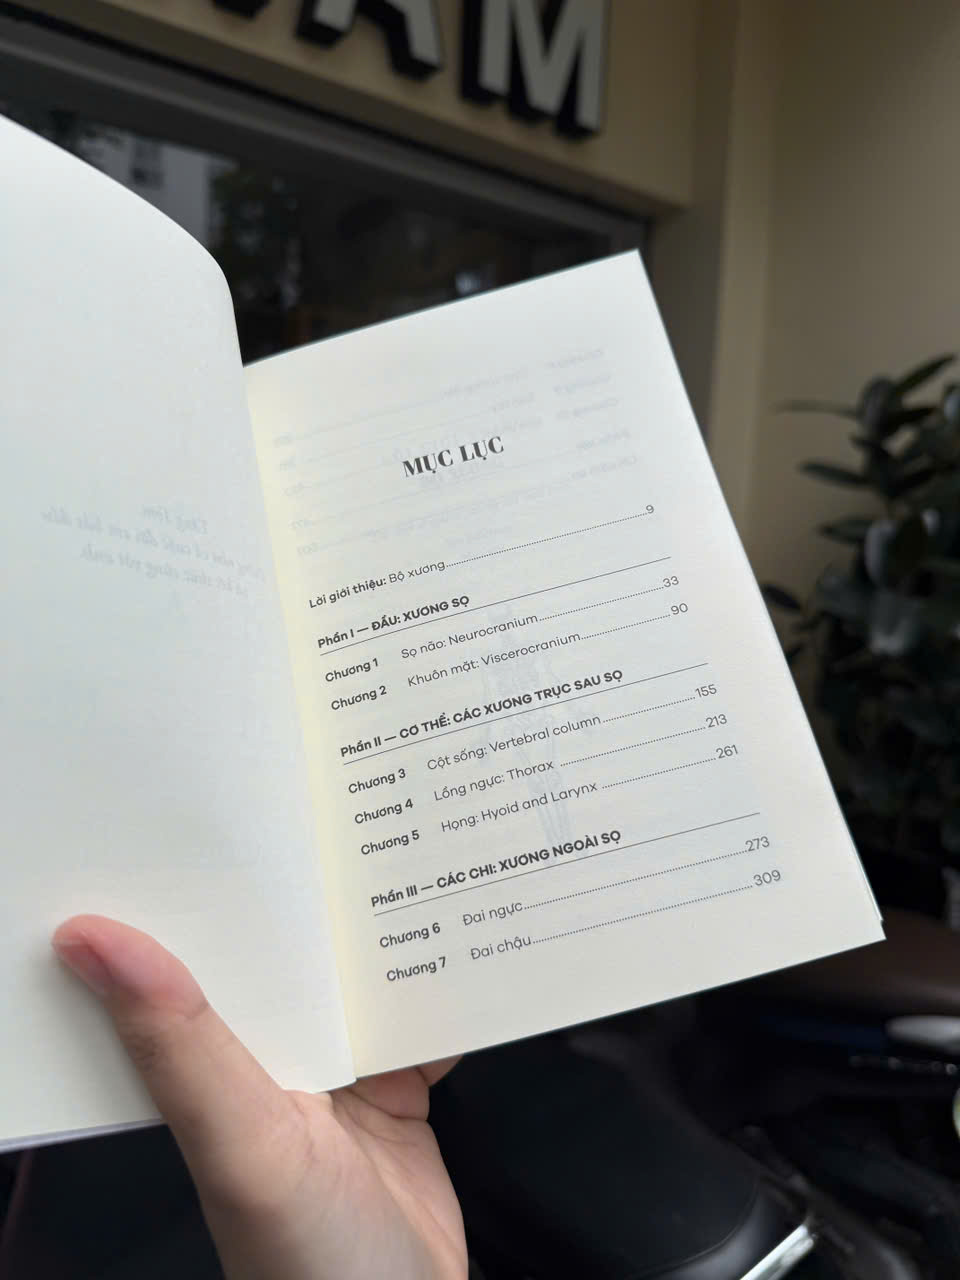 AM
MỤC LỤC
Lời giới thiệu: Bộ xương.....9
Phần I — ĐẦU: XƯƠNG SỌ
Chương 1 Sọ não: Neurocranium.....33
Chương 2 Khuôn mặt: Viscerocranium.....90
Phần II — CƠ THỂ: CÁC XƯƠNG TRỤC SAU SỌ
Chương 3 Cột sống: Vertebral column.....155
Chương 4 Lồng ngực: Thorax.....213
Chương 5 Họng: Hyoid and Larynx.....261
Phần III — CÁC CHI: XƯƠNG NGOÀI SỌ
Chương 6 Đai ngực.....273
Chương 7 Đai chậu.....309